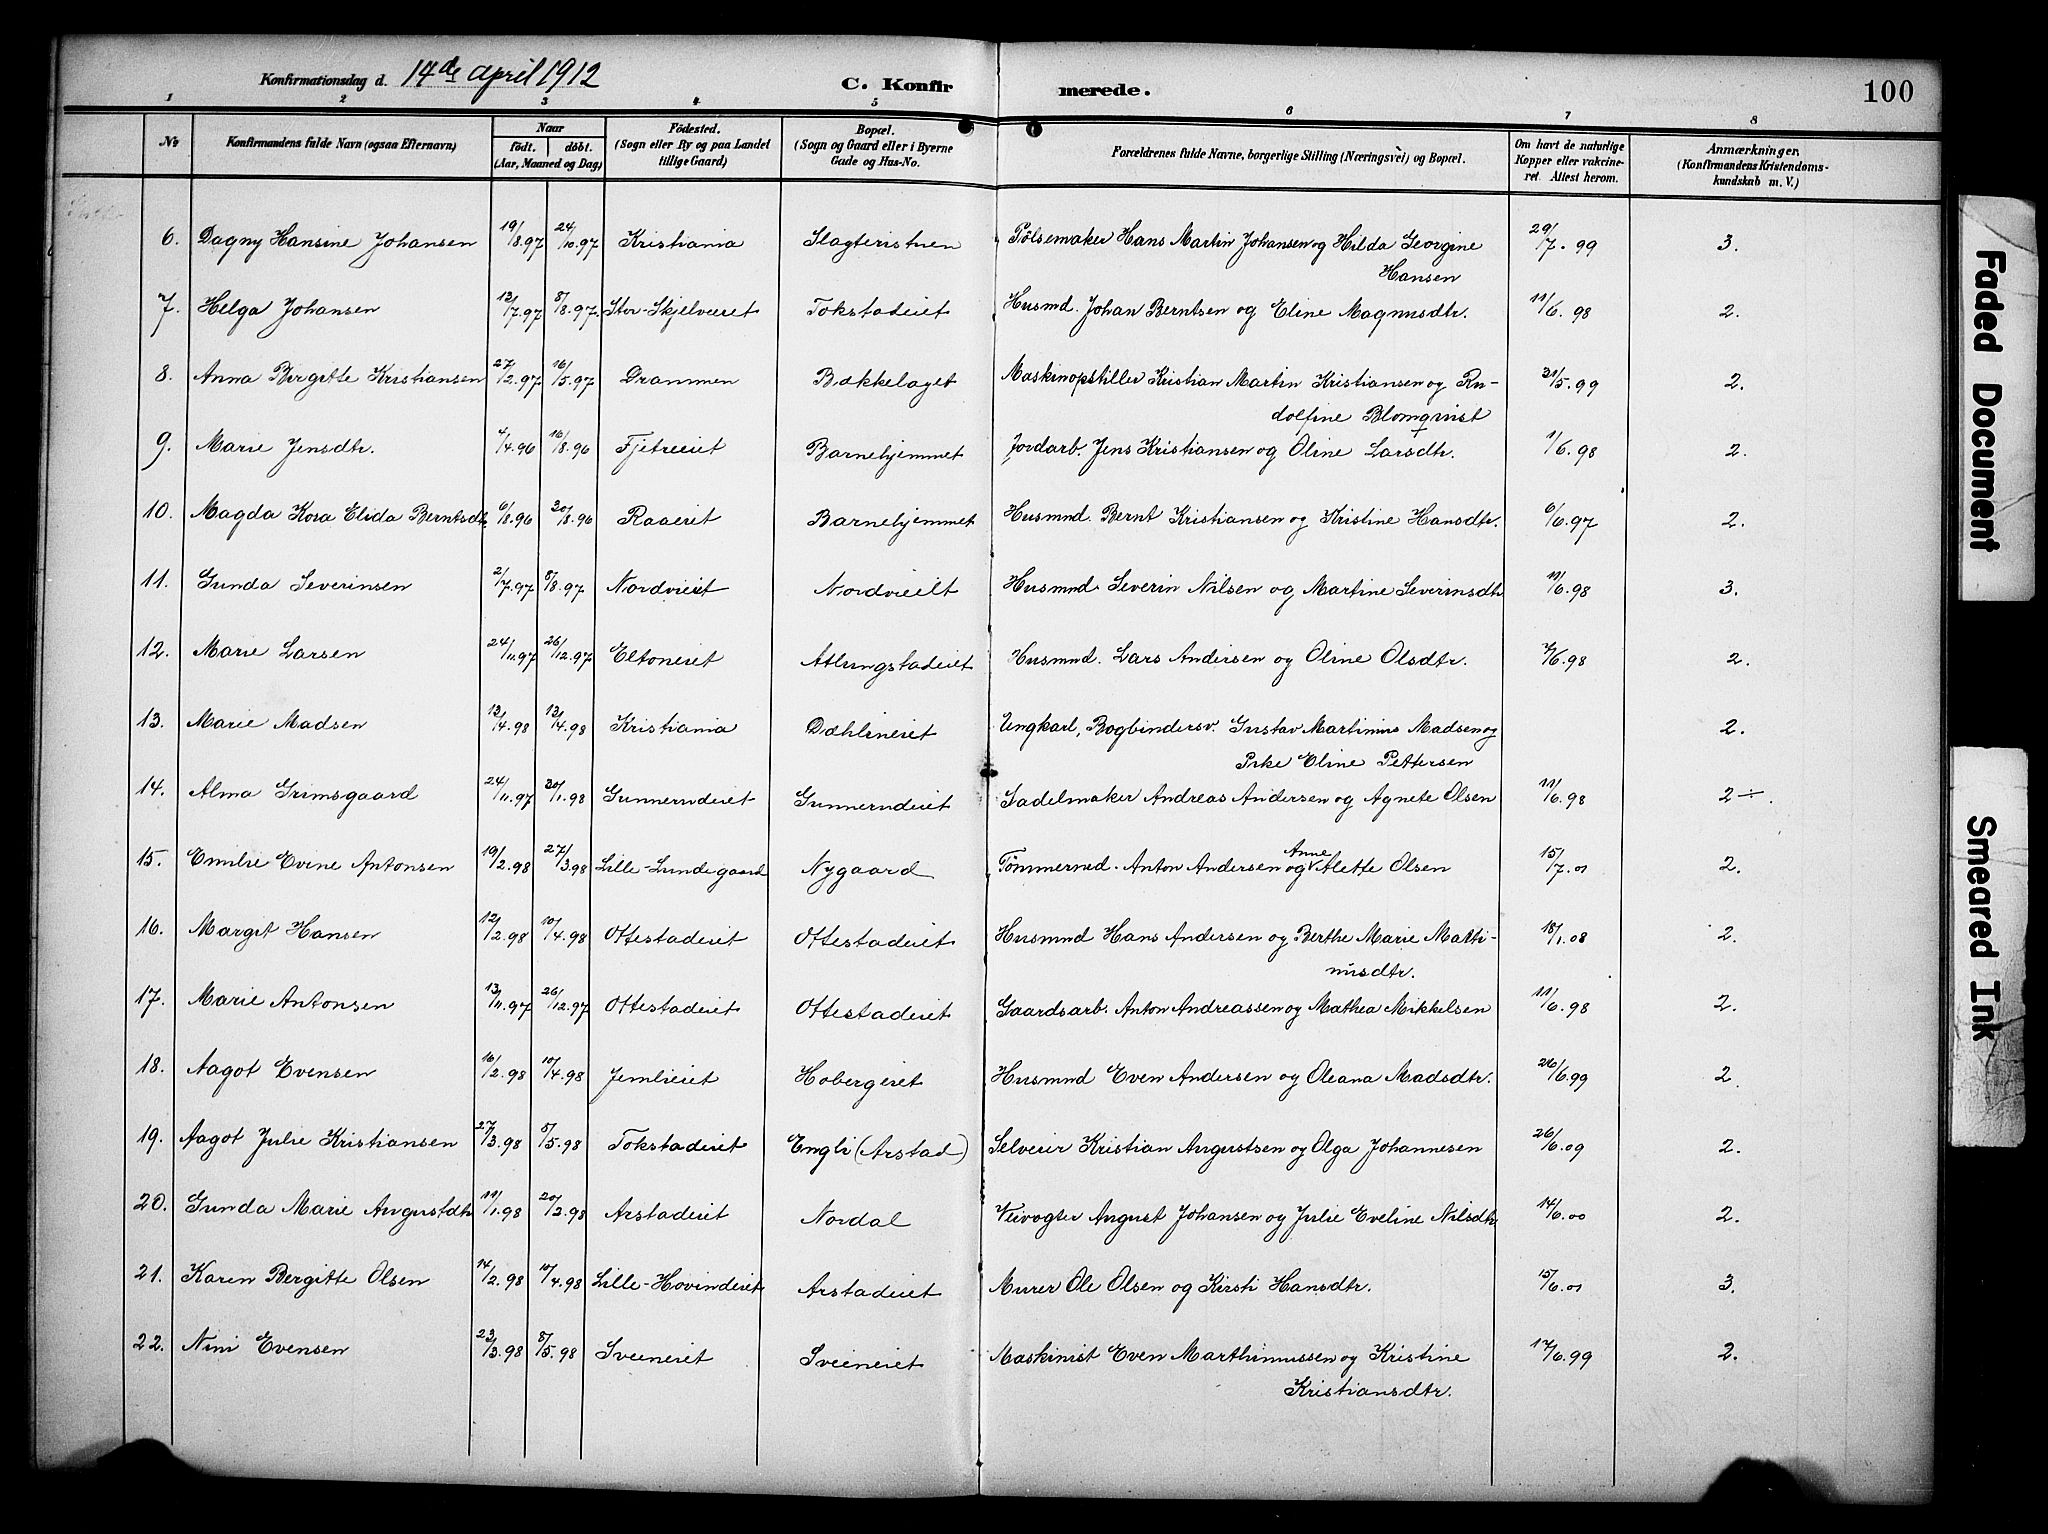 Konfirmationsdag d. 14de april 1912
C. Konfirmerede.
100
1 2 3 4 5 6 7 8
No
Konfirmandens fulde Navn (ogsaa Efternavn)
Naar
födt. döbt.
(Aar, Maaned og Dag)
Födested.
(Sogn eller By og paa Landet
tillige Gaard)
Bopæl.
(Sogn og Gaard eller i Byerne
Gade og Hus-No.
Forældrenes fulde Navne, borgerlige Stilling (Næringsvei) og Bopæl.
Om havt de naturlige
Kopper eller vakcine-
ret. Attest herom.
Anmærkninger,
(Konfirmandens Kristendoms-
kundskab m. V.)
6. Dagny Hansine Johansen 19/8.97 24/10.97 Kristiania Slagteristuen Pölsemaker Hans Martin Johansen og Hilda Georgine 29/7.99 3.
Hansen
7. Helga Johansen 12/7.97 8/8.97 Stor-Skjelveeiet Tokstadeiet Husmd. Johan Berntsen og Eline Magnusdtr. 11/6.98 2.
8. Anna Birgitte Kristiansen 27/2.97 16/5.97 Drammen Bækkelaget Maskinopstiller Kristian Martin Kristiansen og Ru- 31/5.99 2.
dolfine Blomqvist
9. Marie Jensdtr. 4/4.96 16/8.96 Fjetreeiet Barnehjemmet Jordarb. Jens Kristiansen og Oline Larsdtr. 1/6.98 2.
10. Magda Kora Elida Berntsdtr. 6/8.96 30/8.96 Raaeiet Barnehjemmet Husmnd. Bernt Kristiansen og Kristine Hansdtr. 6/6.97 2.
11. Gunda Severinsen 2/7.97 8/8.97 Nordvieiet Nordvieiet Husmnd. Severin Nilsen og Martine Severinsdtr 11/6.98 3.
12. Marie Larsen 24/11.97 26/12.97 Eltoneiet Atlungstadeiet Husmnd. Lars Andersen og Oline Olsdtr. /6.98 2.
13. Marie Madsen 12/4.98 13/4.98 Kristiania Dæhlineiet Ungkarl, Bogbindersv. Gustav Martinius Madsen og 2.
Pike Eline Pettersen
14. Alma Grimsgaard 24/11.97 30/1.98 Gunnerudeiet Gunnerudeiet Sadelmaker Andreas Andersen og Agnete Olsen 11/6.98 2÷.
15. Emilie Evine Antonsen 19/2.98 27/3.98 Lille-Lundegaard Nygaard Tömmermd. Anton Andersen og Anne Alette Olsen 15/7.01 2.
16. Margit Hansen 12/2.98 10/4.98 Ottestadeiet Ottestadeiet Husmnd Hans Andersen og Berthe Marie Matti- 18/1.08 2.
nusdtr.
17. Marie Antonsen 13/11.97 26/12.97 Ottestadeiet Ottestadeiet Gaardsarb. Anton Andreassen og Mathea Mikkelsen 11/6.98 2.
18. Aagot Evensen 16/2.98 10/4.98 Jemlieiet Hobergeiet Husmnd Even Andersen og Oleana Madsdtr. 26/6.99 2.
19. Aagot Julie Kristiansen 27/3.98 8/5.98 Tokstadeiet Engli (Arstad) Selveier Kristian Augustsen og Olga Johannesen 26/6.09 2.
20. Gunda Marie Augustdtr 11/1.98 20/2.98 Arstadeiet Nordal Veivogter August Johansen og Julie Eveline Nilsdtr 14/6.00 2.
21. Karen Bergitte Olsen 14/2.98 10/4.98 Lille-Hovindeiet Arstadeiet Murer Ole Olsen og Kirsti Hansdtr. 15/6.01 3.
22. Nini Evensen 23/3.98 8/5.98 Sveeneiet Sveeneiet Maskinist Even Marthinussen og Kristine 17/6.99 2.
Kristiansdtr.
Faded Document
Smeared Ink